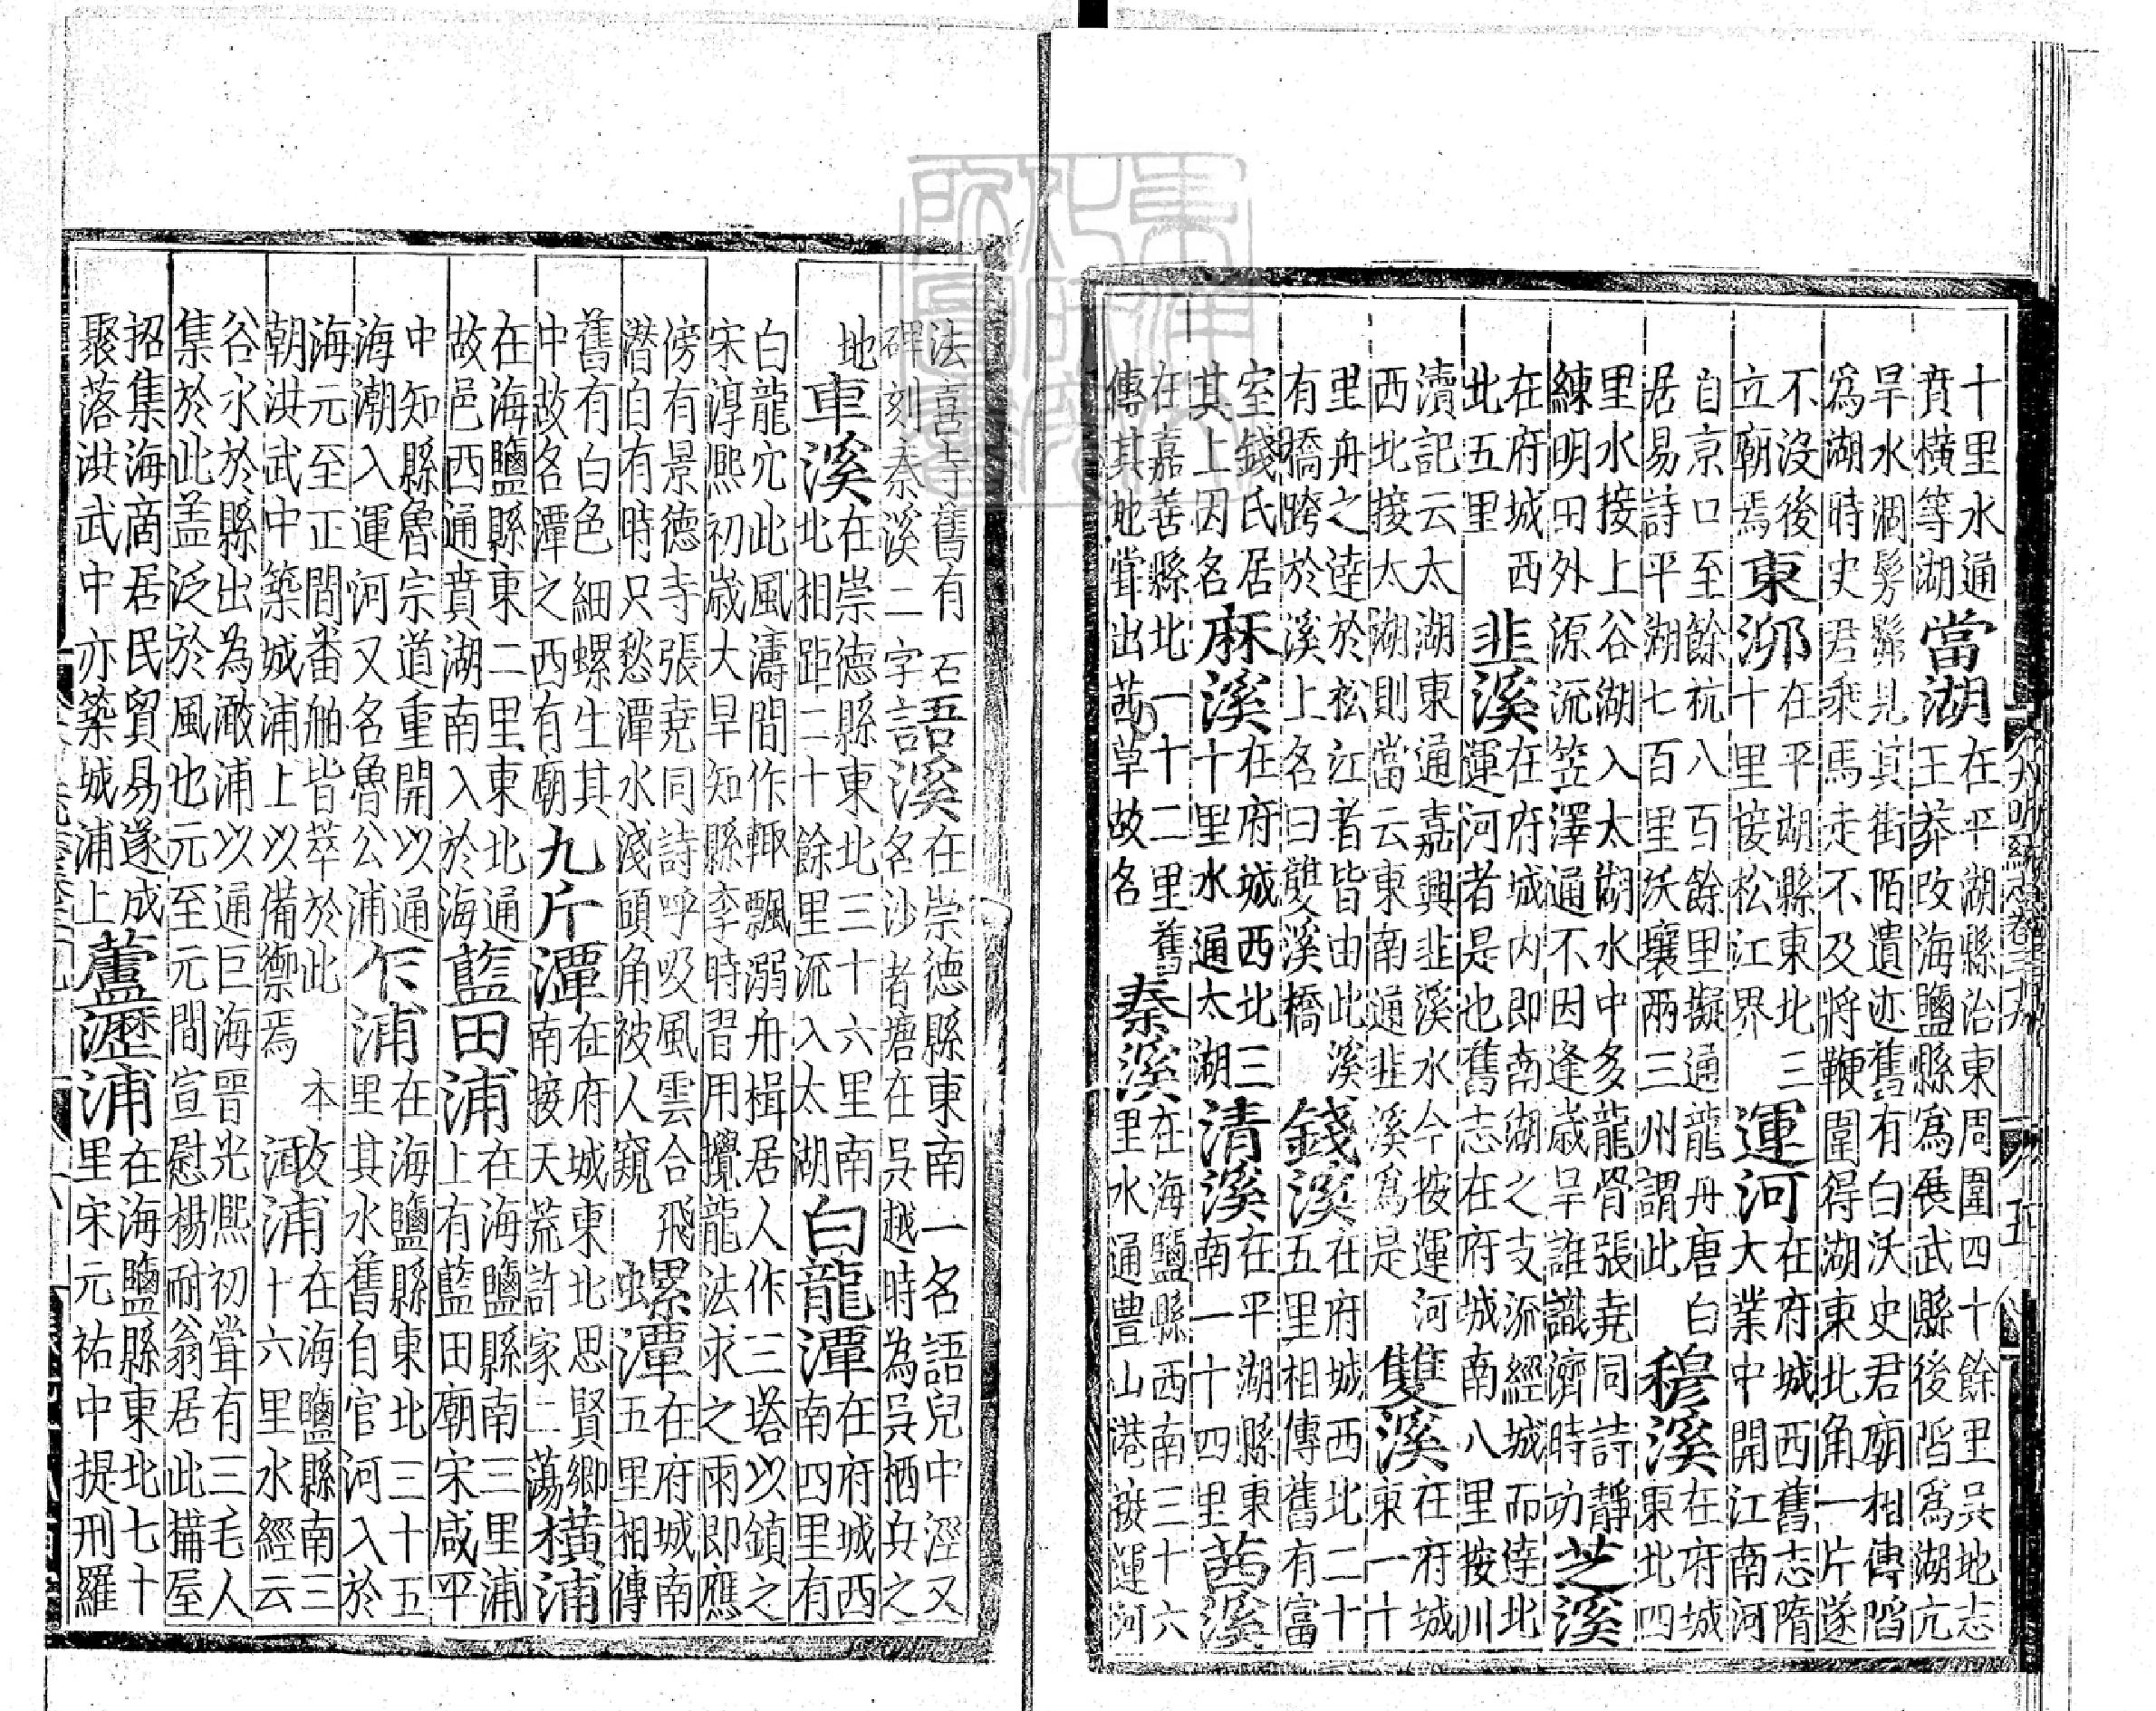 十里水通
賁横等湖
當湖
在平湖縣治東周圍四十餘里吳地志
王莽改海鹽縣爲展武縣後陷爲湖亢
旱水涸髣髴見其街陌遺迹舊有白沃史君廟相傳陷
爲湖時史君乘馬走不及將鞭圍得湖東北角一片遂
不沒後
立廟焉
東泖
在平湖縣東北三
十里接松江界
運河
在府城西舊志隋
大業中開江南河
自京口至餘杭八百餘里擬通龍舟唐白
居易詩平湖七百里沃壤兩三州謂此
穆溪
在府城
東北四
里水接上谷湖入太湖水中多龍骨張堯同詩靜
練明田外源流笠澤通不因逢歲旱誰識濟時功
芝溪
在府城西
北五里
韭溪
在府城内即南湖之支派經城而達北
運河者是也舊志在府城南八里按川
瀆記云太湖東通嘉興韭溪水今按運河
西北接太湖則當云東南通韭溪爲是
雙溪
在府城
東一十
里舟之達於松江者皆由此溪
有橋跨於溪上名曰雙溪橋
錢溪
在府城西北二十
五里相傳舊有富
室錢氏居
其上因名
麻溪
在府城西北三
十里水通太湖
清溪
在平湖縣東
南一十四里
茜溪
在嘉善縣北一十二里舊
傳其地嘗出茜草故名
秦溪
在海鹽縣西南三十六
里水通豊山港襟運河
大明一統志卷三十九
五
法喜寺舊有石
碑刻秦溪二字
語溪
在崇德縣東南一名語兒中涇又
名沙渚塘在吳越時為吳栖兵之
地
車溪
在崇德縣東北三十六里南
北相距二十餘里派入太湖
白龍潭
在府城西
南四里有
白龍穴此風濤間作輙飄溺舟楫居人作三塔以鎮之
宋淳熙初歲大旱知縣李時習用攪龍法求之雨即應
傍有景德寺張堯同詩呼吸風雲合飛
潜自有時只愁潭水淺頭角被人窺
螺潭
在府城南
五里相傳
舊有白色細螺生其
中故名潭之西有廟
九斤潭
在府城東北思賢鄉
南接天荒許家二蕩
横浦
在海鹽縣東二里東北通
故邑西通賁湖南入於海
藍田浦
在海鹽縣南三里浦
上有藍田廟宋咸平
中知縣魯宗道重開以通
海潮入運河又名魯公浦
乍浦
在海鹽縣東北三十五
里其水舊自官河入於
海元至正間番舶皆萃於此本
朝洪武中築城浦上以備禦焉
澉浦
在海鹽縣南三
十六里水經云
谷水於縣出為澉浦以通巨海晋光熙初嘗有三毛人
集於此盖泛於風也元至元間宣慰楊耐翁居此構屋
招集海商居民貿易遂成
聚落洪武中亦築城浦上
蘆瀝浦
在海鹽縣東北七十
里宋元祐中提刑羅